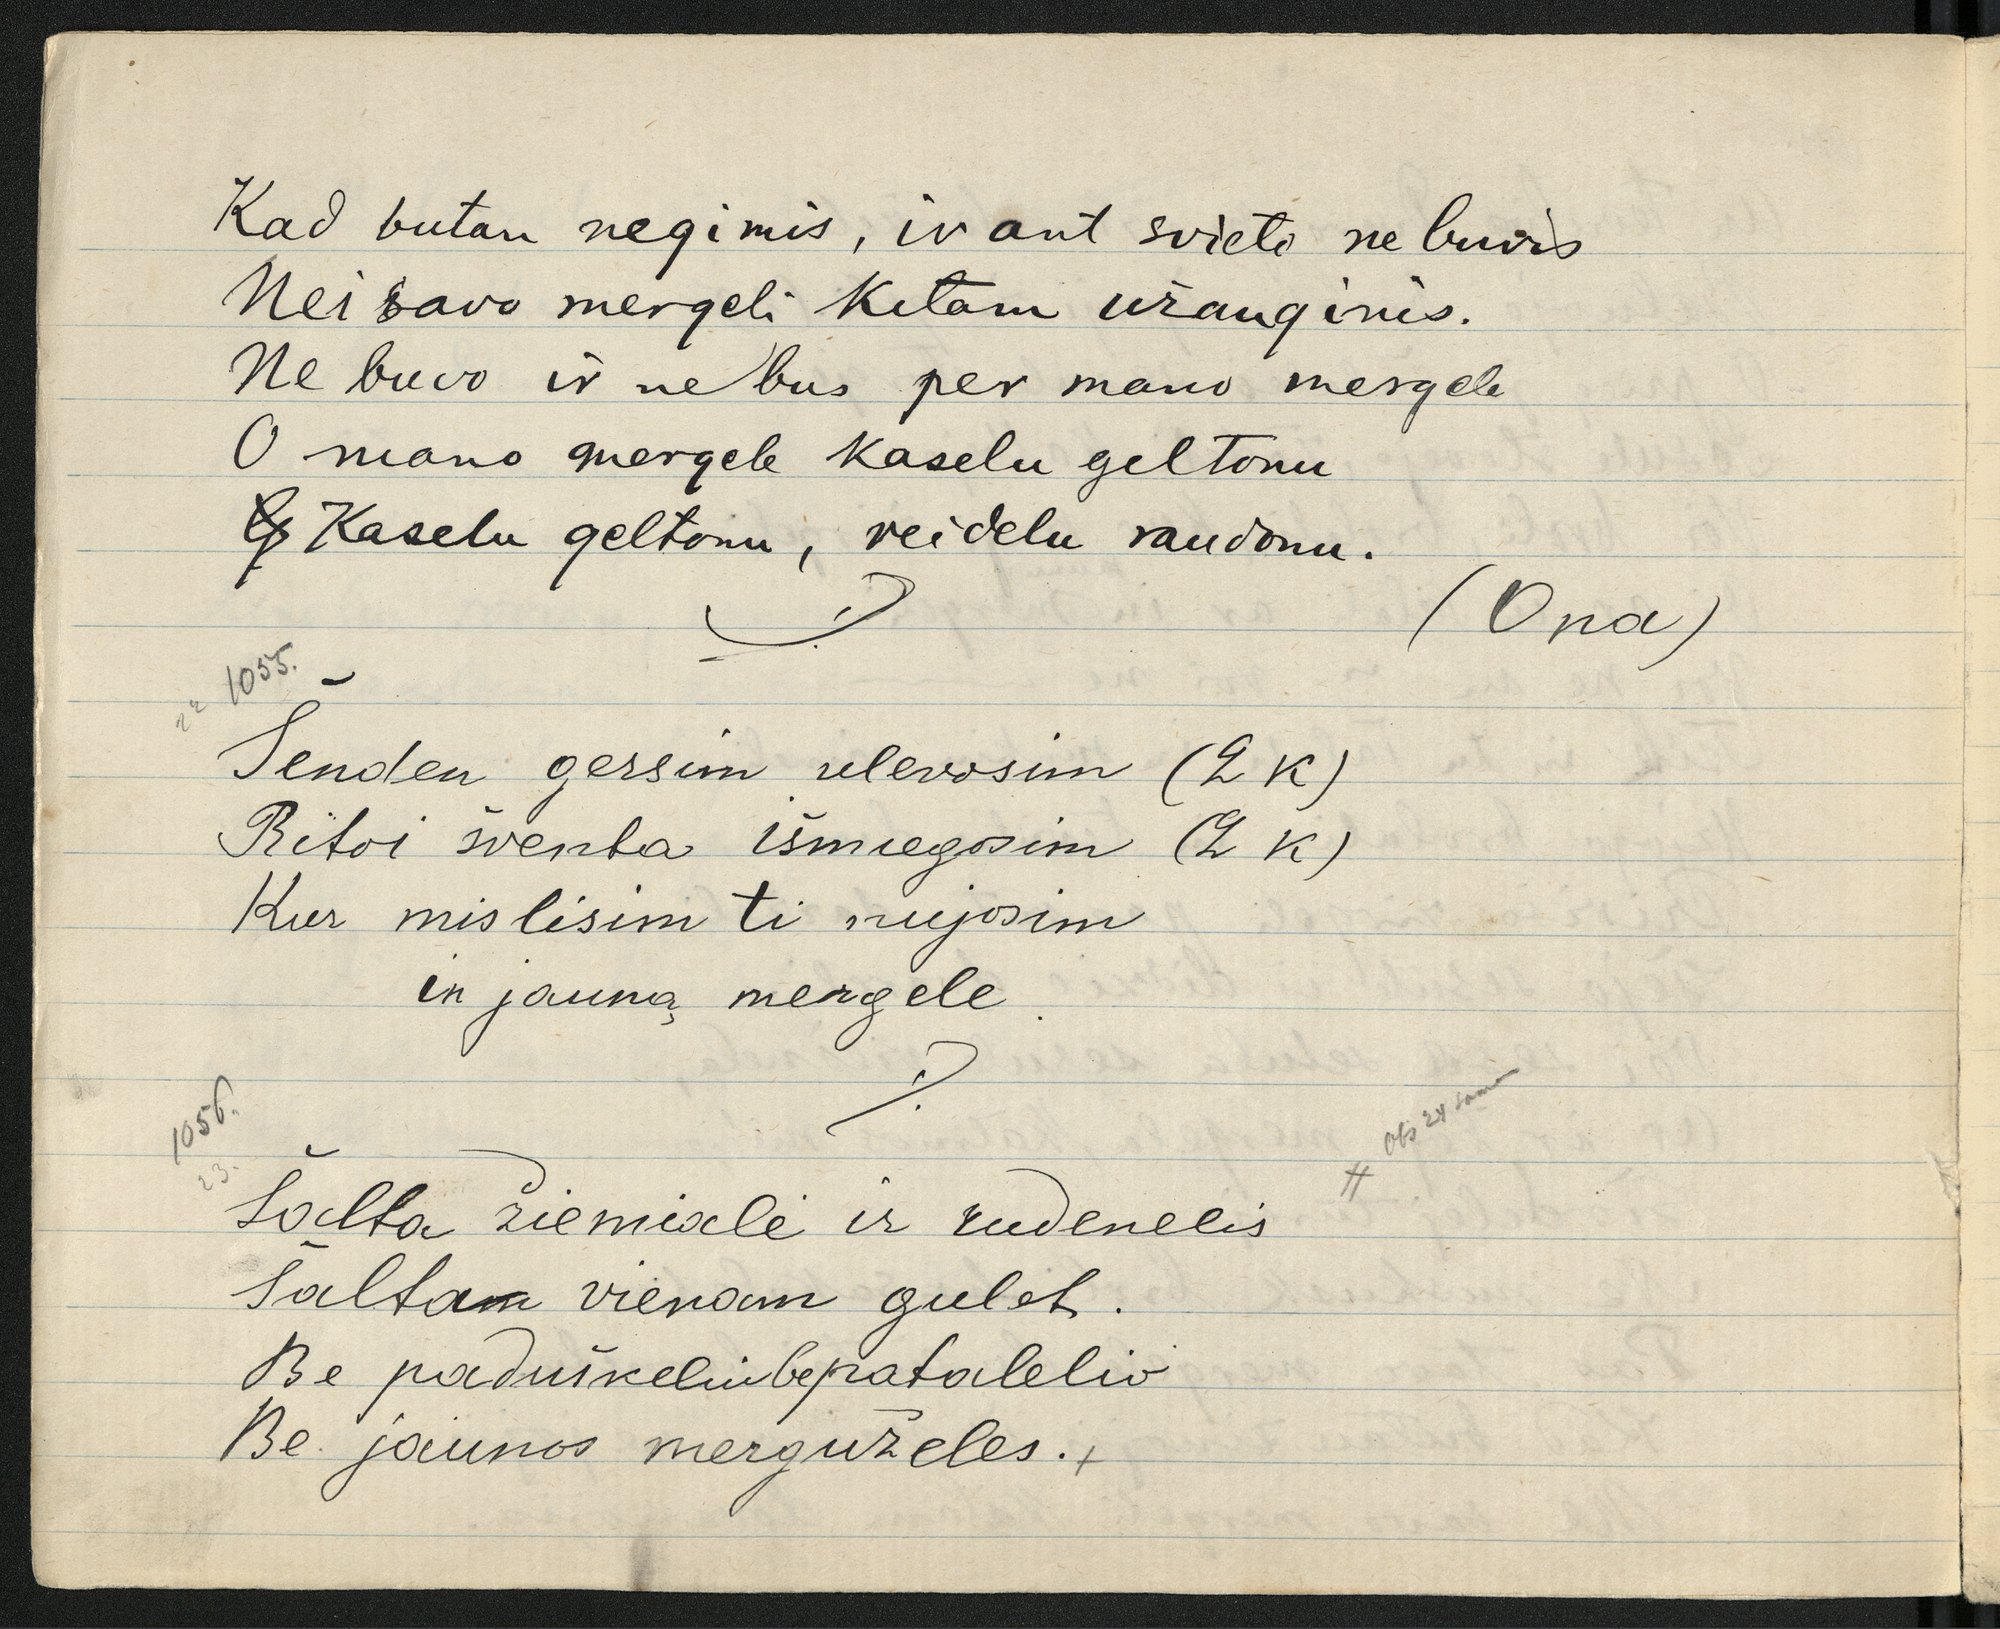 Kad butau negimis, ir ant svieto ne buvis
Nei savo mergeli kitam užauginis.
Ne buvo ir ne bus per mano mergele
O mano mergele kaselu geltonu
Kaselu geltonu, veidelu raudonu.
(Ona)
1055.
22
Šenden gersim ulevosim (2 K)
Ritoi šventa išmiegosim (2 K)
Kur mislisim ti nujosim
in jauną mergele.
1056.
23.
Šalta žiemiale ir rudenelis
Šaltam vienam gulet.
Be paduškeliu be patalelio
Be jaunos merguželes.+